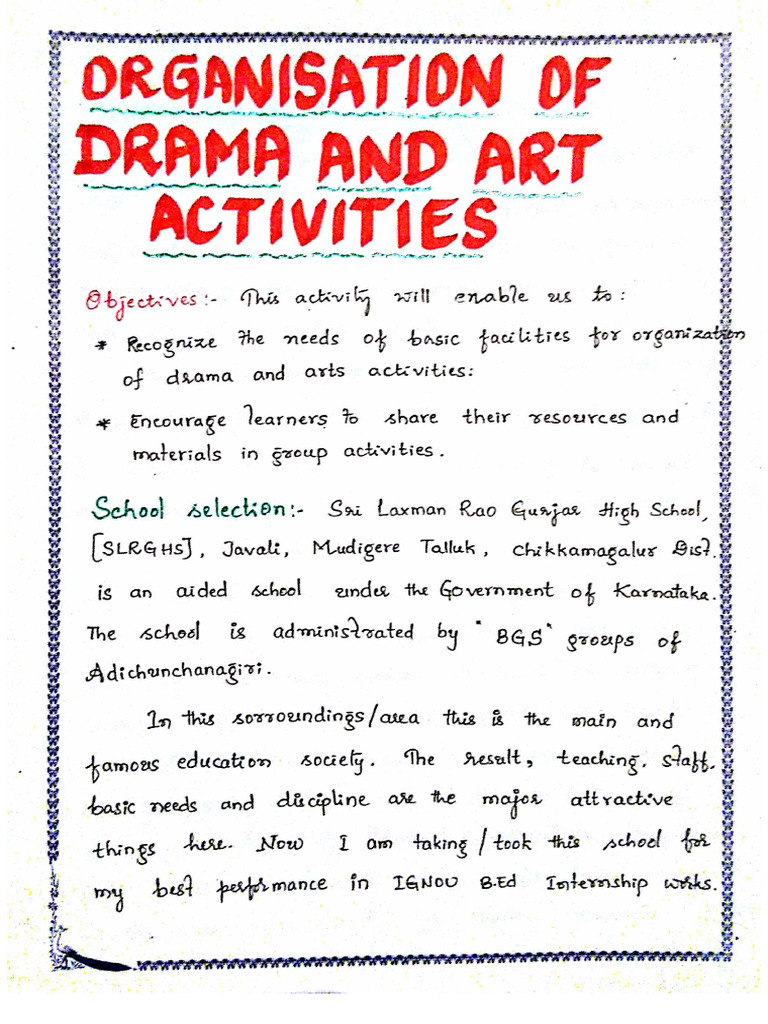 ORGANISATION OF
DRAMA AND ART
ACTIVITIES
Objectives:- This activity will enable us to:
* Recognize the needs of basic facilities for organization
of drama and arts activities:
* Encourage learners to share their resources and
materials in group activities.
School selection:- Sri Laxman Rao Gurjar High School,
[SLRGHS], Javali, Mudigere Talluk, Chikkamagalur Dist.
is an aided school under the Government of Karnataka.
The school is administrated by "BGS" groups of
Adichunchanagiri.
In this sorroundings/area this is the main and
famous education society. The result, teaching, staff.
basic needs and discipline are the major attractive
things here. Now I am taking/took this school for
my best performance in IGNOU B.Ed Internship works.